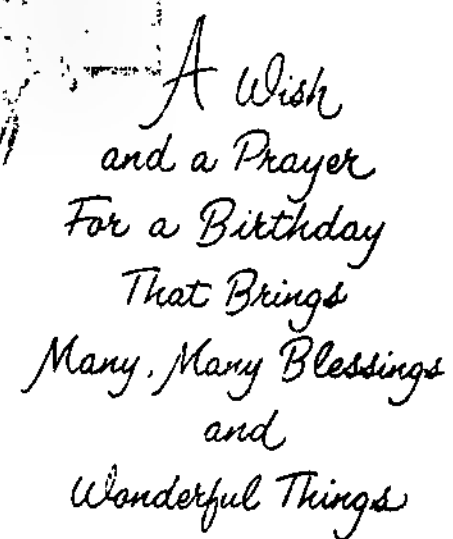 A Wish
and a Prayer
For a Birthday
That Brings
Many, Many Blessings
and
Wonderful Things